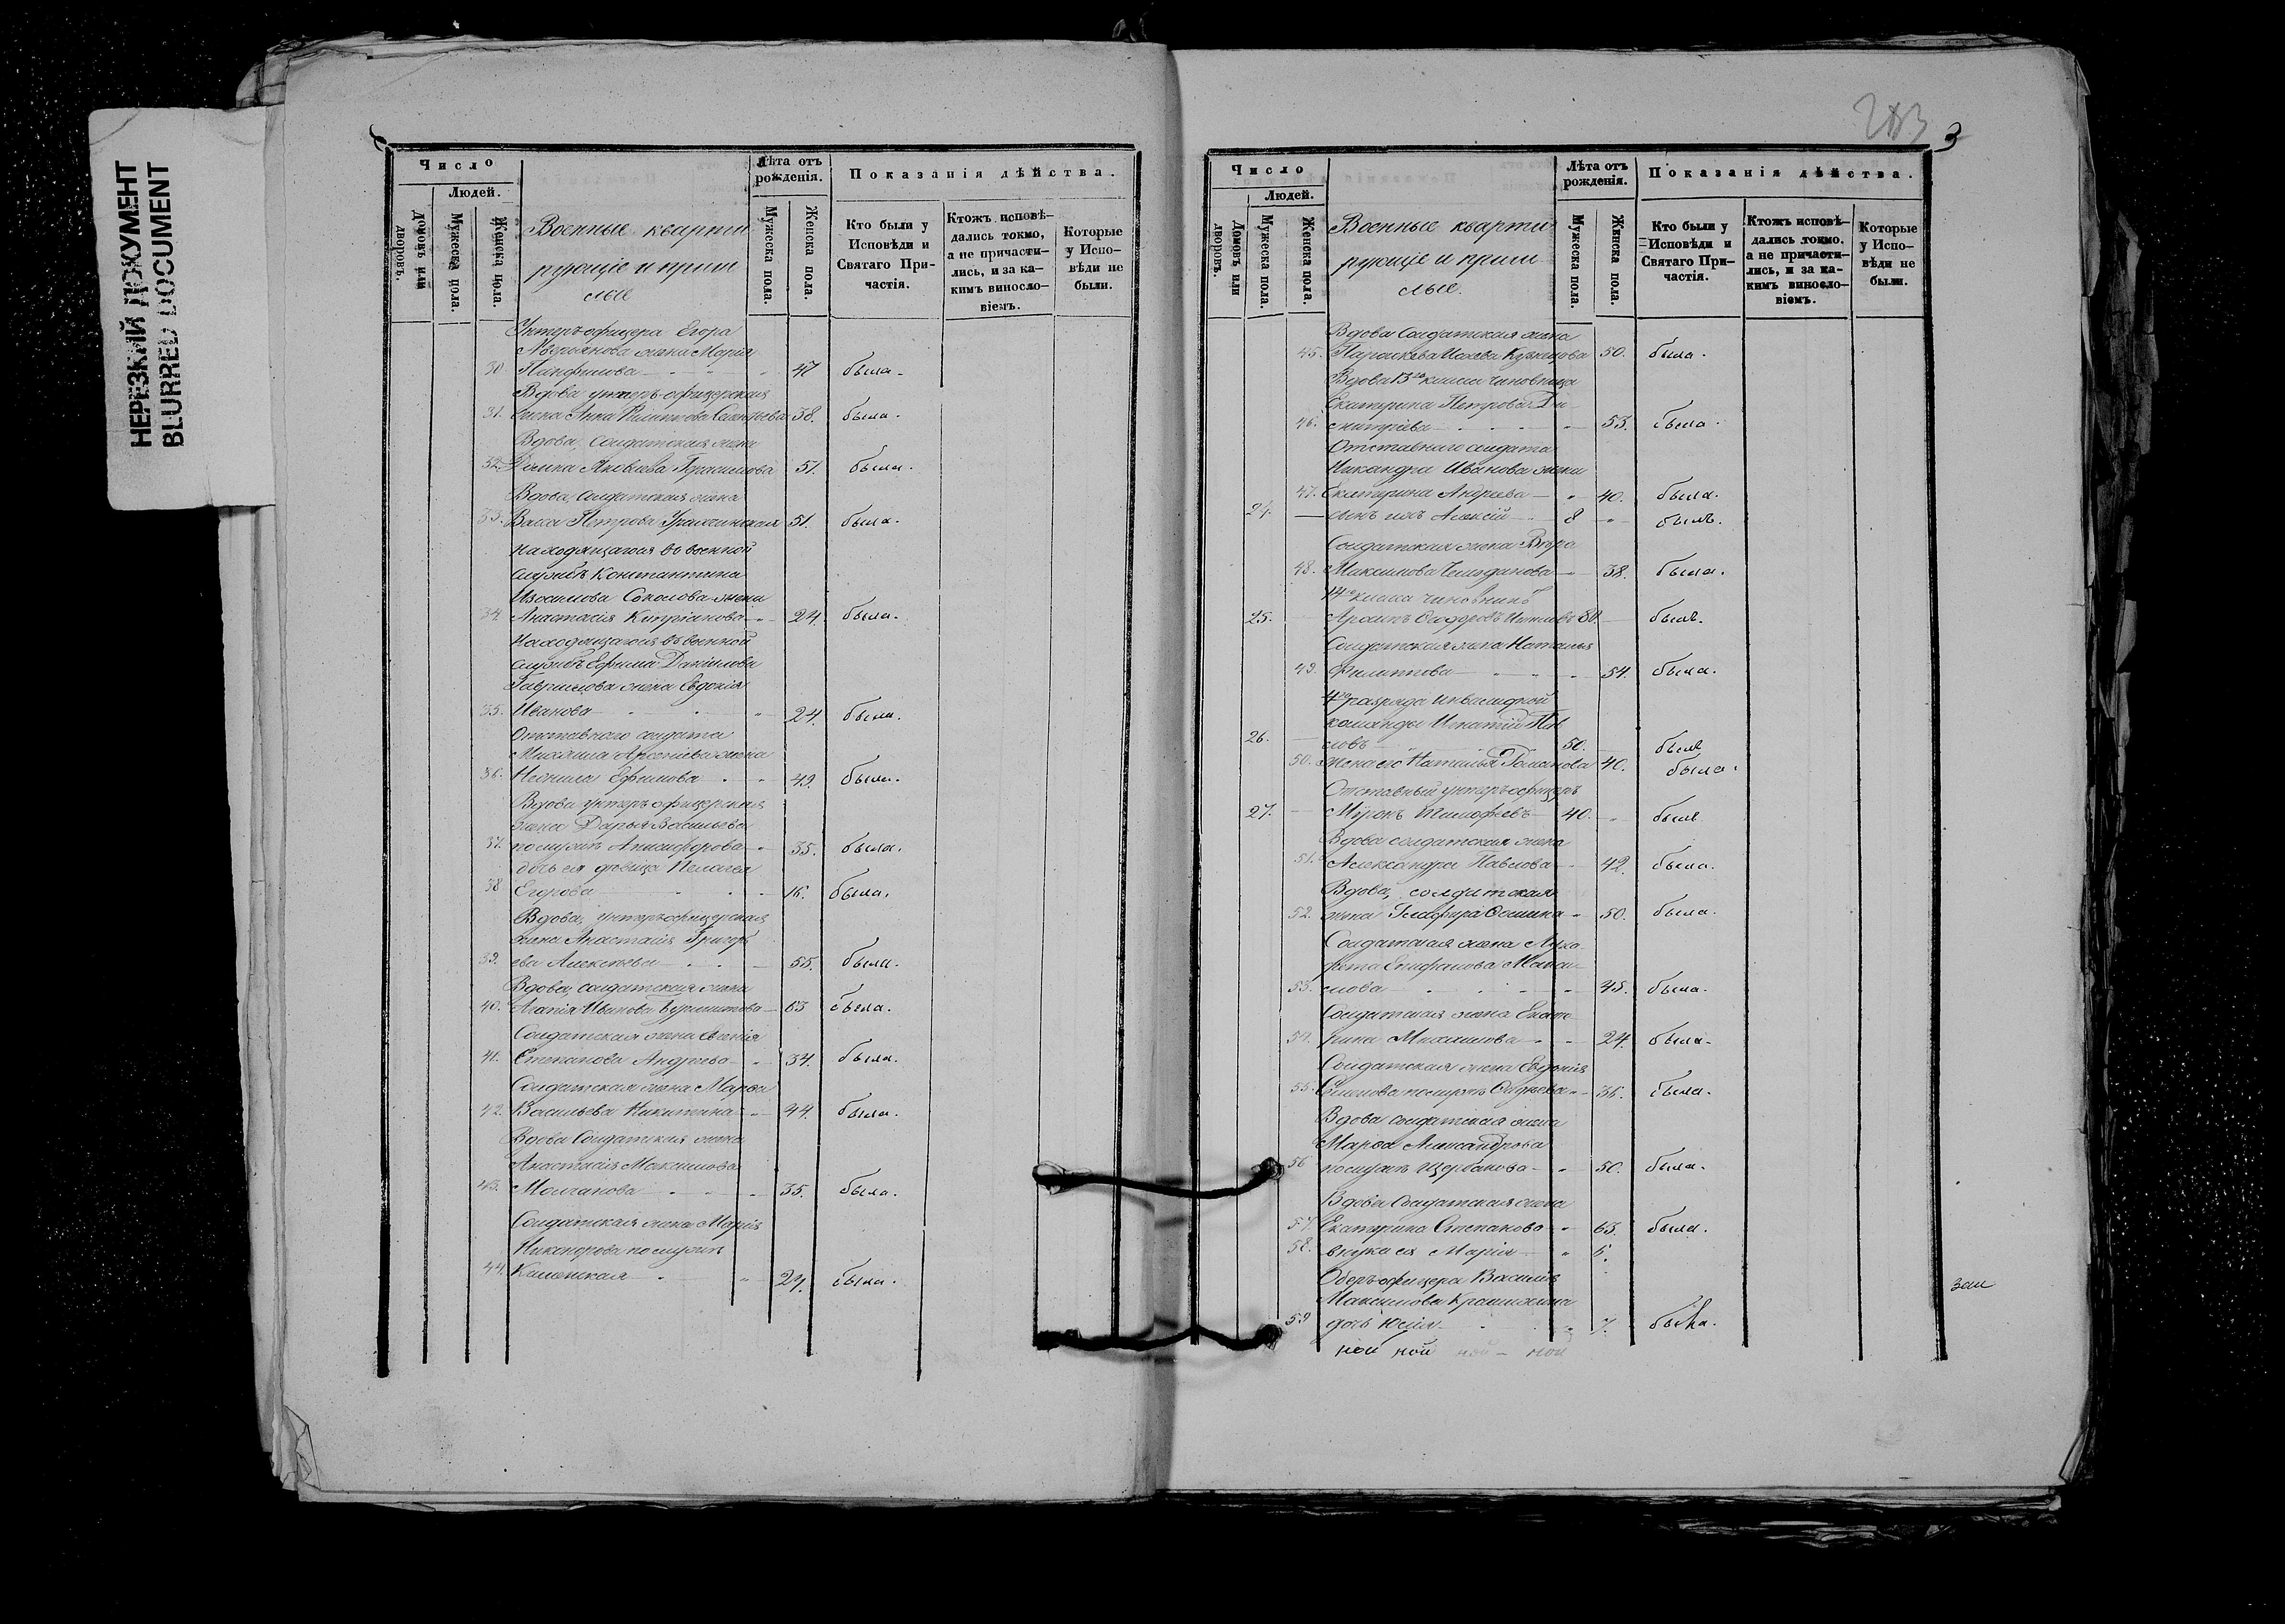 НЕРЕЗКИЙ ДОКУМЕНТ
BLURRED DOCUMENT
Число
Людей.
Домовъ или дворовъ.
Мужеска пола.
Женска пола.
Военные кварти
рующіе и приш
лые
Лѣта отъ рожденія.
Мужеска пола.
Женска пола.
Показанія дѣйства.
Кто были у Исповѣди и Святаго Причастія.
Ктожъ исповѣдались токмо, а не причастились, и за какимъ винословіемъ.
Которые у Исповѣди не были.
Унтеръ офицера Егора
Аверьянова жена Марія
30. Панфилова 47 была.
Вдова унтеръ-офицерская
31. жена Анна Филиппова 38. была.
Вдова, солдатская жена
32. Яковлева Герасимова 51. была.
Вдова, солдатская жена
33. Васса Петрова 51. была.
находящагося въ военной
службѣ Константина
Изосимова Соколова жена
34. Анастасія Кипріанова 24. была.
Находящагося въ военной
службѣ Ефима Данилова
Гаврилова жена Евдокія
35. Иванова 24. была.
Отставнаго солдата
Михаила Арсеніева жена
36. Неонила Ефимова 49. была.
Вдова унтеръ офицерская
жена Дарья Васильева
37. по мужѣ Анисифорова 35. была.
дочь ея дѣвица Пелагея
38 Егорова 16. была.
Вдова, унтеръ офицерская
жена Анастасія Григорь
39. ева Алексѣева 55. была.
Вдова, солдатская жена
40. Агапія Иванова Бурмистрова 63 была.
Солдатская жена Евгенія
41. Степанова Андреева 34. была.
Солдатская жена Марѳа
42. Васильева Никитина 44. была.
Вдова Солдатская жена
Анастасія Максимова
43. Молчанова 35. была.
Солдатская жена Марія
Никонорова по мужѣ
44. Каменская 27. была.
283
3
Число
Людей.
Домовъ или дворовъ.
Мужеска пола.
Женска пола.
Военные кварти
рующіе и приш
лые.
Лѣта отъ рожденія.
Мужеска пола.
Женска пола.
Показанія дѣйства.
Кто были у Исповѣди и Святаго Причастія.
Ктожъ исповѣдались токмо, а не причастились, и за какимъ винословіемъ.
Которые у Исповѣди не были.
Вдова Солдатская жена
45. Параскева Исаева Кузнецова 50. была.
Вдова 13го класса чиновница
Екатерина Петрова Ди
46. митріева 53. была.
Отставнаго солдата
Никандра Иванова жена
47. Екатерина Андреева 40. была.
24. сынъ ихъ Алексій 8 былъ.
Солдатская жена Вѣра
48. Максимова Чемоданова 38. была.
14го класса чиновникъ
25. Сидоровъ 80. былъ.
Солдатская жена Наталья
49. Филиппова 54. была.
4го разряда инвалидной
команды Игнатій Пав
26. ловъ 50. былъ
50. жена его Наталья Романова 40. была.
Отставный унтеръ офицеръ
27. Миронъ Тимофеевъ 40. былъ
Вдова солдатская жена
51. Александра Павлова 42. была.
Вдова, солдатская
52. жена Глафира Осипова 50. была.
Солдатская жена Мит
Епифанова Макси
53. мова 45. была.
Солдатская жена Екате
54. рина Михаилова 24. была.
Солдатская жена Евдокія
55. Семенова по мужѣ 36. была.
Вдова солдатская жена
Марѳа Александрова
56 по мужѣ Щербакова 50. была.
Вдова Солдатская жена
57. Екатерина Степанова 63. была.
58. внука ея Марія 6.
Оберъ офицера Василія
Максимова
59 дочь Юлія 7. была.
ной ной ной ной